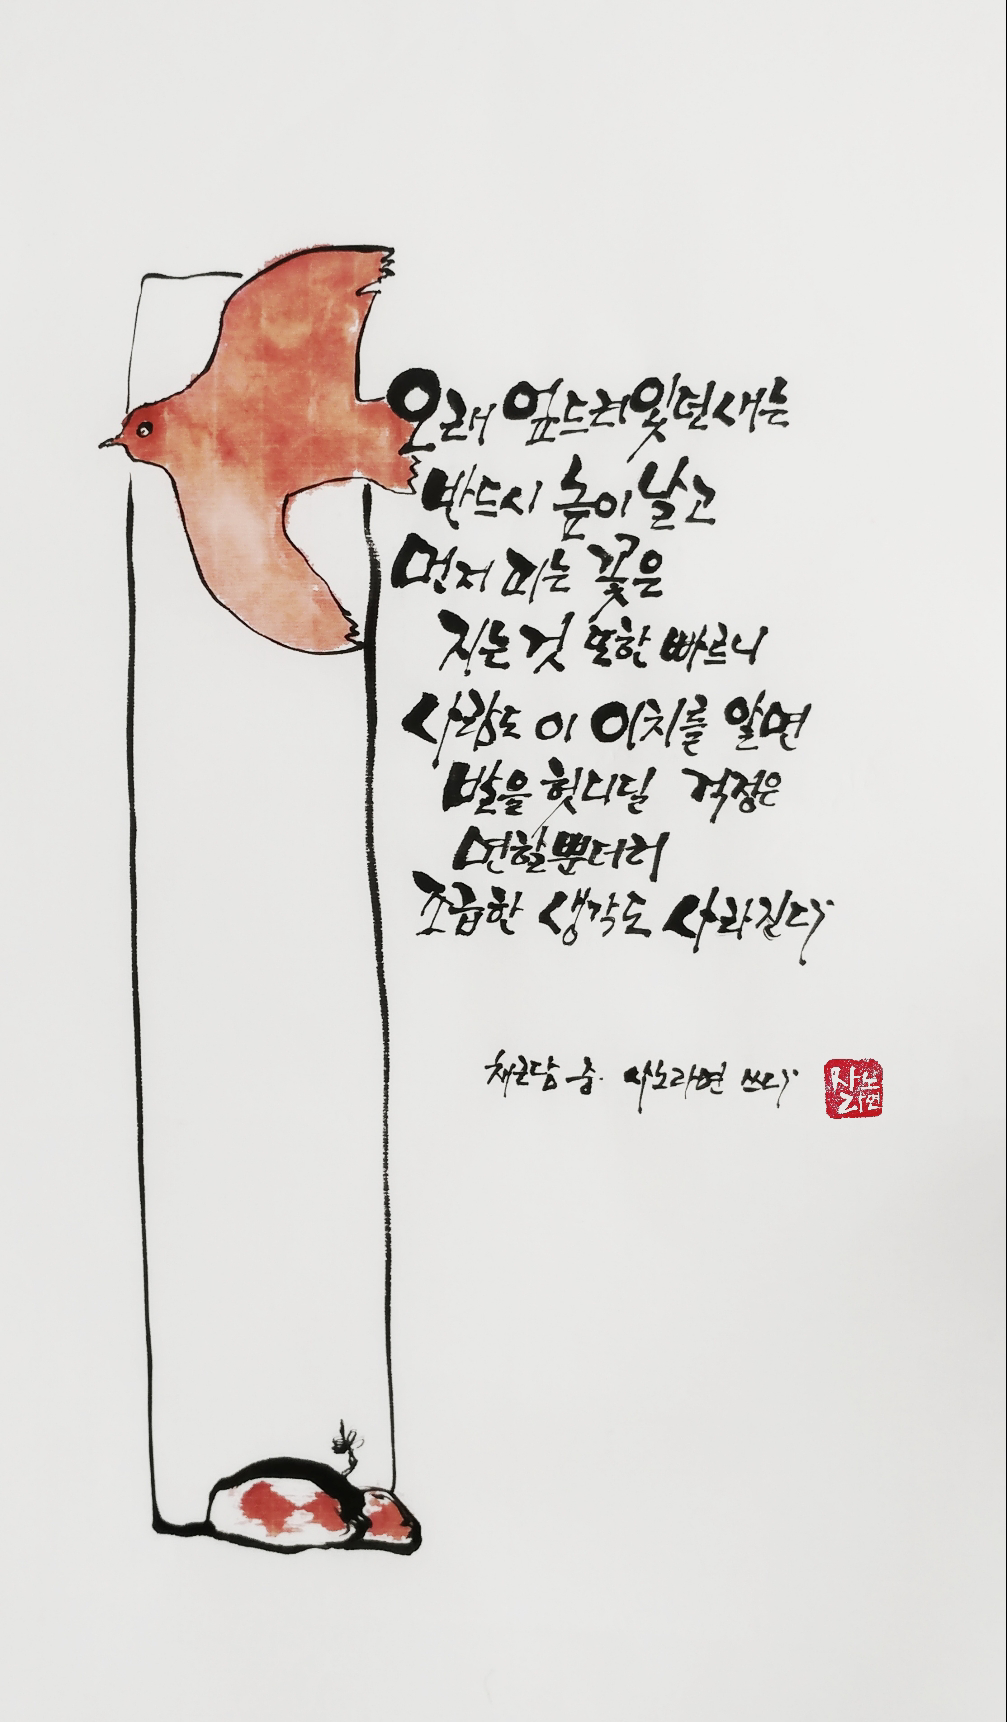 오래 엎드려있던새는
반드시 높이날고
먼저 피는 꽃은
지는것 또한 빠르니
사람도 이 이치를 알면
발을 헛디딜 걱정은
면할뿐더러
조급한 생각도 사라진다
채근담 중. 사노라면 쓰다
사노
라면